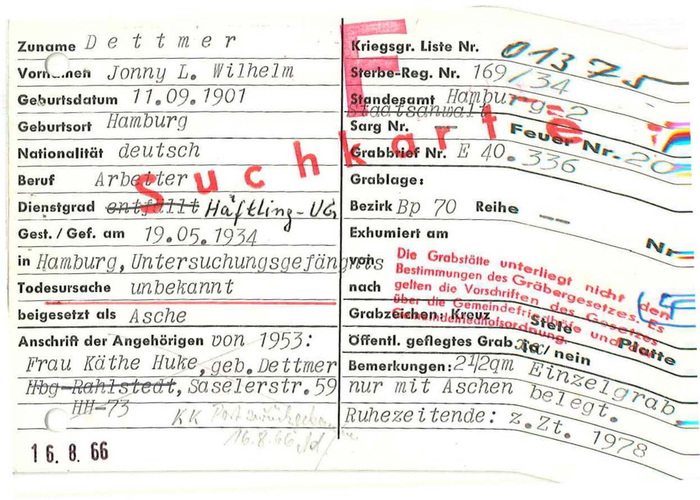 Zuname Dettmer
Vornamen Jonny L. Wilhelm
Geburtsdatum 11.09.1901
Geburtsort Hamburg
Nationalität deutsch
Beruf Arbeiter
Dienstgrad entfällt Häftling-UG
Gest. / Gef. am 19.05.1934
in Hamburg, Untersuchungsgefängnis
Todesursache unbekannt
beigesetzt als Asche
Anschrift der Angehörigen von 1953:
Frau Käthe Huke, geb. Dettmer
Hbg-Rahlstedt, Saselerstr. 59
HH-73
KK Post zurückgekommen
16.8.66
16. 8. 66
Suchkarte
E
Kriegsgr. Liste Nr. 01375
Sterbe-Reg. Nr. 169/34
Standesamt Hamburg-2
Staatsanwalt
Sarg Nr. Feuer Nr. 20
Grabbrief Nr. E 40.336
Grablage:
Bezirk Bp 70 Reihe Nr
Exhumiert am
von
nach
Die Grabstätte unterliegt nicht den
Bestimmungen des Gräbergesetzes. Es
gelten die Vorschriften des Gesetzes
über die Gemeindefriedhöfe und der
Gemeindefriedhofsordnung.
Grabzeichen: Kreuz Stele Platte
Öffentl. gepflegtes Grab: Ja / nein
Bemerkungen: 2 1/2qm Einzelgrab
nur mit Aschen belegt.
Ruhezeitende: z.Zt. 1978